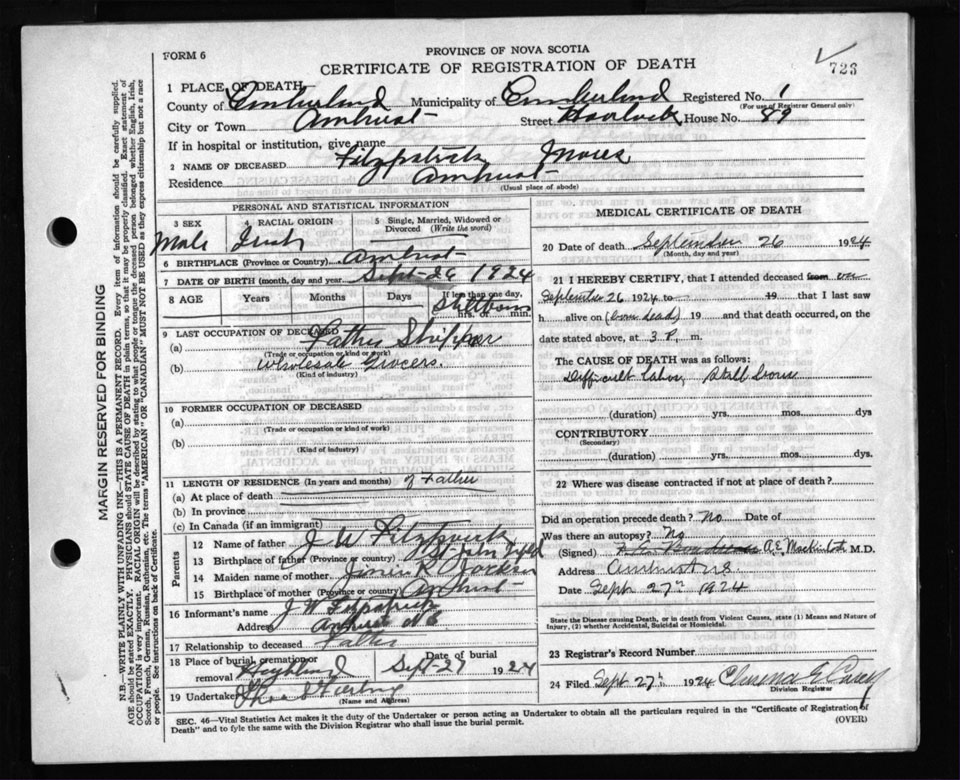 FORM 6
PROVINCE OF NOVA SCOTIA
CERTIFICATE OF REGISTRATION OF DEATH
723
1 PLACE OF DEATH
County of Cumberland Municipality of Cumberland Registered No. 1
(For use of Registrar General only)
City or Town Amherst Street Havelock House No. 89
If in hospital or institution, give name
2 NAME OF DECEASED Fitzpatrick
Residence Amherst
(Usual place of abode)
PERSONAL AND STATISTICAL INFORMATION
3 SEX
Male
4 RACIAL ORIGIN
Irish
5 Single, Married, Widowed or Divorced (Write the word)
6 BIRTHPLACE (Province or Country) Amherst
7 DATE OF BIRTH (month, day and year) Sept-26 1924
8 AGE Years Months Days If less than one day, hrs. or min.
Stillborn
9 LAST OCCUPATION OF DECEASED
(a) Father Shipper
(Trade or occupation or kind of work)
(b) Wholesale Grocers.
(Kind of industry)
10 FORMER OCCUPATION OF DECEASED
(a)
(Trade or occupation or kind of work)
(b)
(Kind of industry)
11 LENGTH OF RESIDENCE (In years and months) of Father
(a) At place of death
(b) In province
(c) In Canada (if an immigrant)
Parents
12 Name of father J W Fitzpatrick
13 Birthplace of father (Province or country) St. John Nfld
14 Maiden name of mother R Jackson
15 Birthplace of mother (Province or country) Amherst
16 Informant's name J W Fitzpatrick
Address Amherst N S
17 Relationship to deceased Father
18 Place of burial, cremation or removal Highland Date of burial Sept-27 1924
19 Undertaker
(Name and Address)
MEDICAL CERTIFICATE OF DEATH
20 Date of death September 26 1924
(Month, day and year)
21 I HEREBY CERTIFY, that I attended deceased from on
September 26 1924 to 19 that I last saw
h alive on (born dead) 19 and that death occurred, on
date stated above, at 3 P. m.
The CAUSE OF DEATH was as follows:
Difficult labor, Still born
(duration) yrs. mos. dys
CONTRIBUTORY
(Secondary)
(duration) yrs. mos. dys.
22 Where was disease contracted if not at place of death?
Did an operation precede death? No Date of
Was there an autopsy? No
(Signed) A.E. Mackintosh, M.D.
Address Amherst N S
Date Sept 27th 1924
State the Disease causing Death, or in death from Violent Causes, state (1) Means and Nature of Injury, (2) whether Accidental, Suicidal or Homicidal.
23 Registrar's Record Number
24 Filed Sept 27th 1924
Division Registrar
(OVER)
SEC. 46—Vital Statistics Act makes it the duty of the Undertaker or person acting as Undertaker to obtain all the particulars required in the "Certificate of Registration of
Death" and to fyle the same with the Division Registrar who shall issue the burial permit.
MARGIN RESERVED FOR BINDING
N.B.—WRITE PLAINLY WITH UNFADING INK—THIS IS A PERMANENT RECORD. Every item of information should be carefully supplied.
AGE should be stated EXACTLY. PHYSICIANS should STATE CAUSE OF DEATH in plain terms, so that it may be properly classified. Exact statement of
OCCUPATION is very important. RACIAL ORIGIN will be described by stating to what people or tongue the deceased person belonged whether English, Irish,
Scotch, French, German, Russian, Ruthenian, etc. The terms "AMERICAN" OR "CANADIAN" MUST NOT BE USED as they express citizenship but not a race
or people. See instructions on back of Certificate.